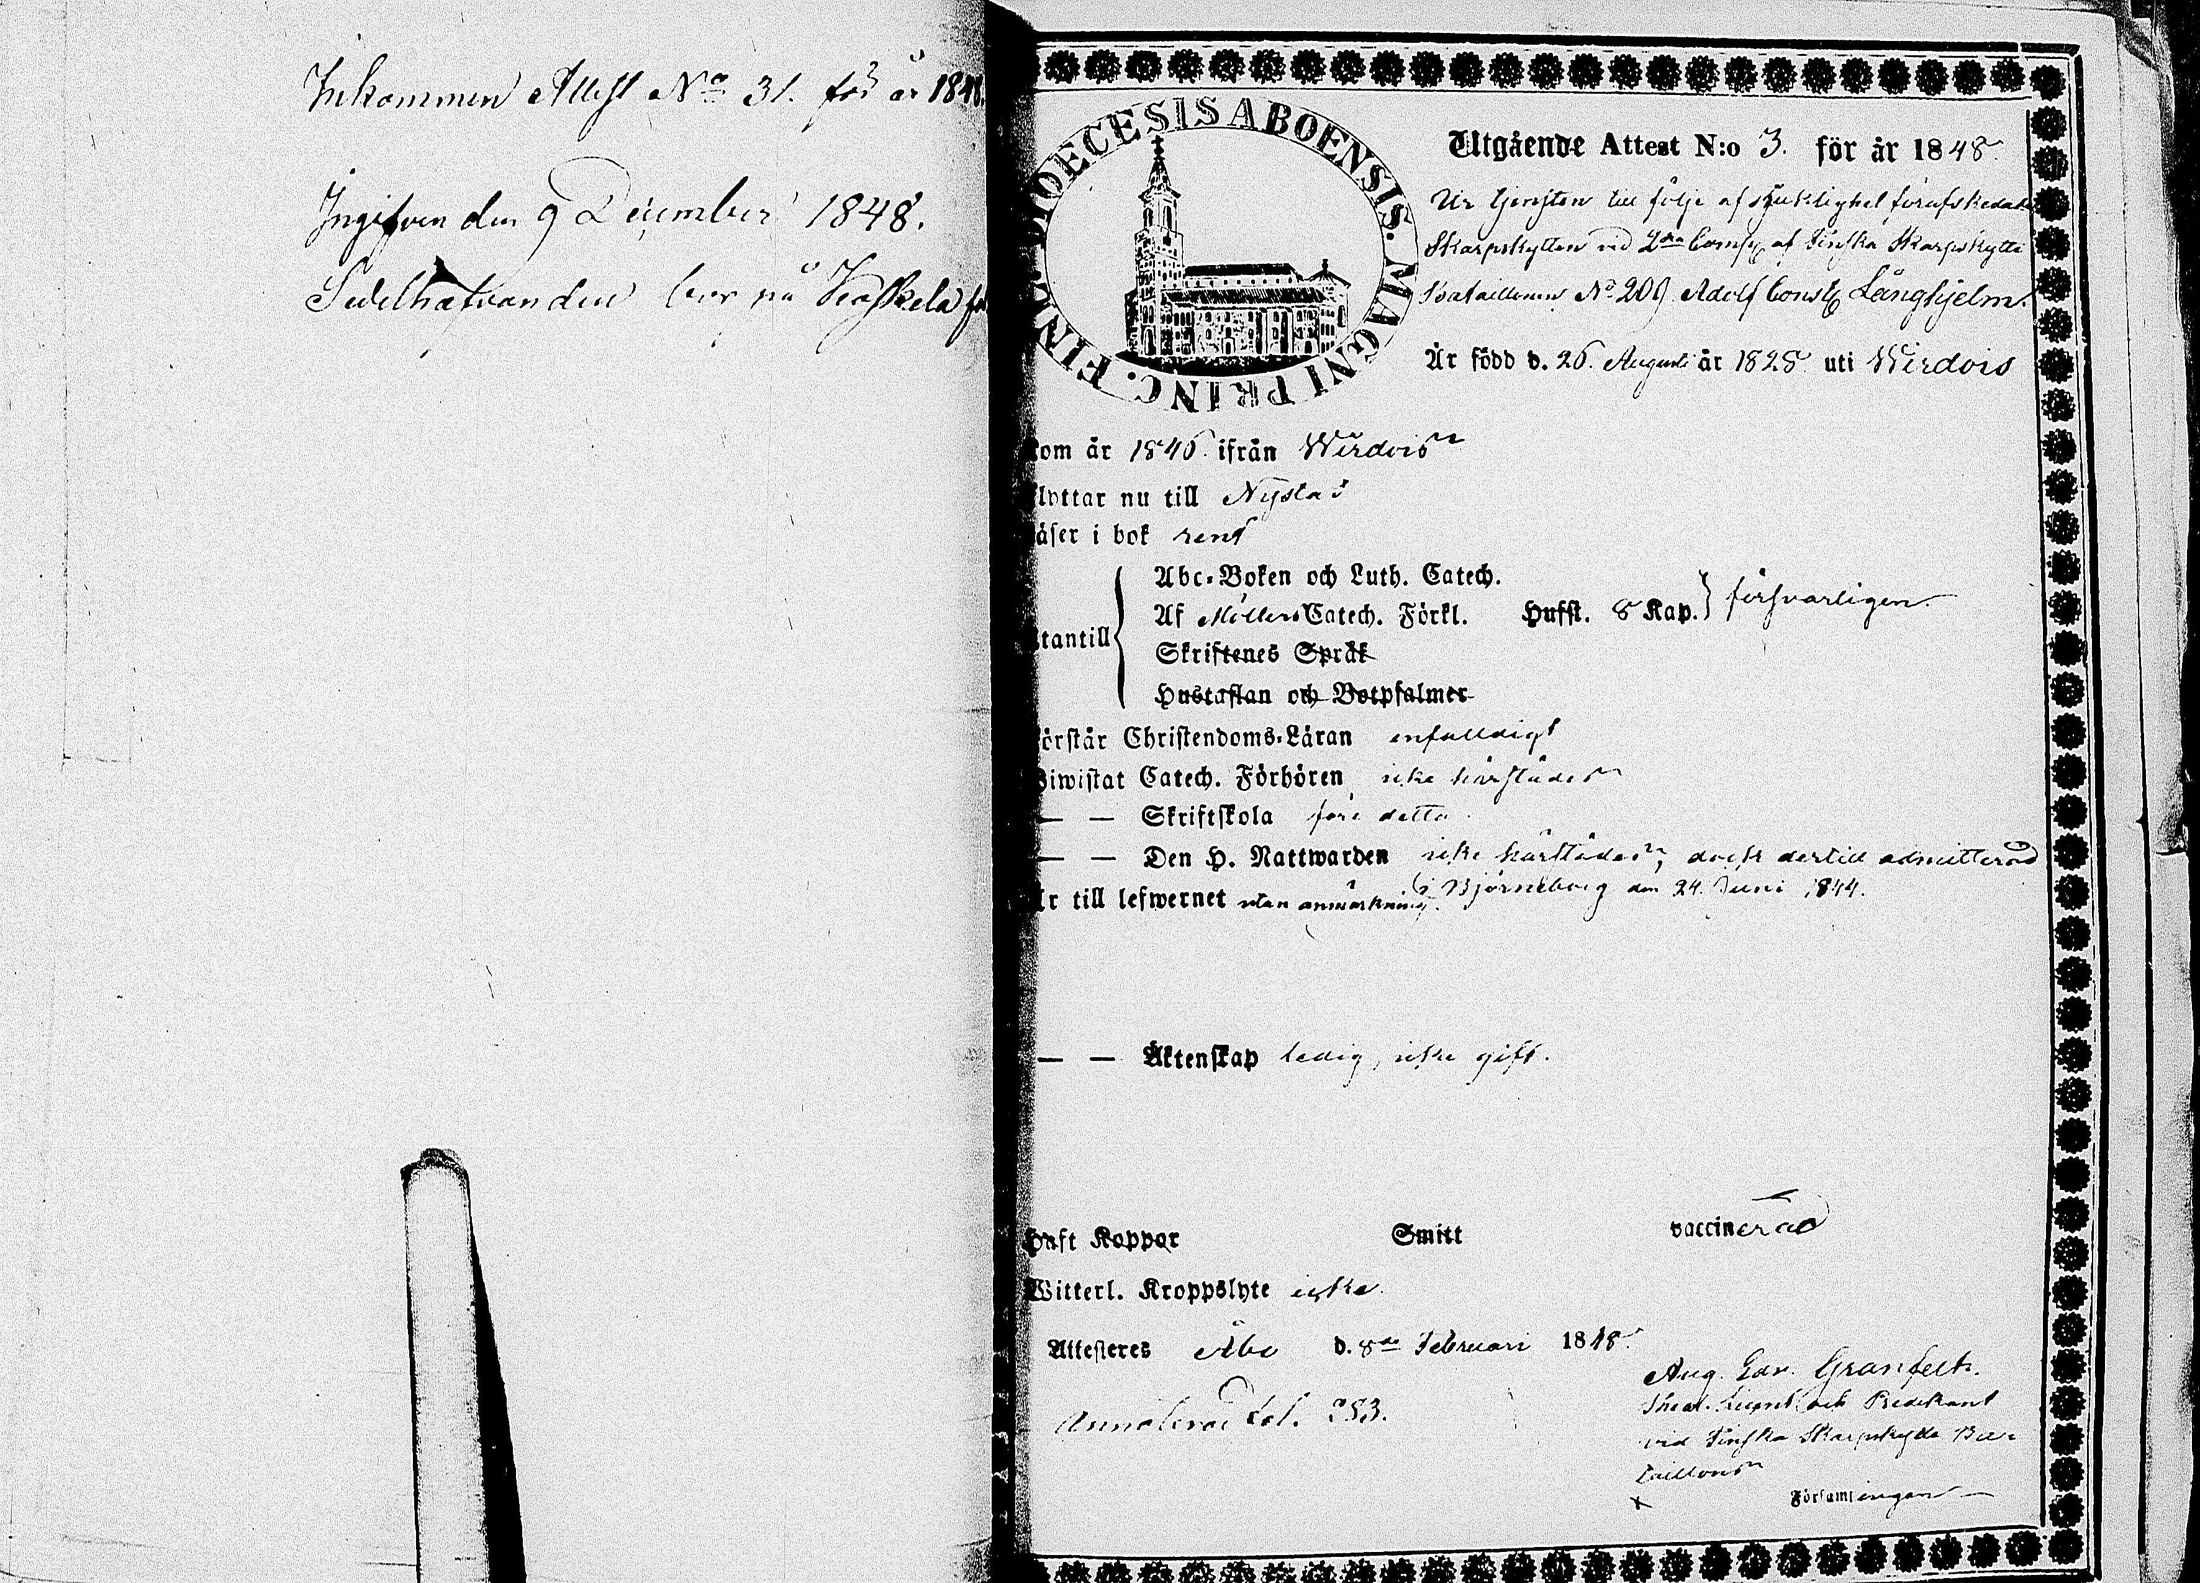 Inkommen Attest No 31. för år 1848.
Ingifven den 9 December 1848.
Sedelhafvanden bor på
DIOECESIS ABOENSIS. MAGNI PRINC. FINL.
Utgående Attest N:o 3. för år 1848.
Ur tjensten till följe af sjuklighet förafskedade
Skarpskytten vid 2dra Comp. af Finska Skarpskytte
Bataillonen No 209 Adolf Const. Långhjelm.
Är född d. 26. Augusti år 1828 uti Wirdois
kom år 1846. ifrån Wirdois
flyttar nu till Nystad
läser i bok rent
Abc-Boken och Luth. Catech.
Af Möllers Catech. Förkl. Hufst. 8 Kap. } försvarligen.
utantill
Skriftenes Språk
Hustaflan och Botpsalmer
Förstår Christendoms-Läran enfaldigt
Biwistat Catech. Förhören icke härstädes
— — Skriftskola före detta.
— — Den H. Nattwarden icke härstädes, dock dertill admitterad
i Björneborg den 24. Juni 1844.
Är till lefwernet utan anmärkning.
— — Äktenskap ledig, icke gift.
Haft Koppor Smitt vaccinerad
Witterl. Kroppslyte icke.
Attesteres Åbo d. 8de Februari 1848.
Aug. Edv. Granfelt.
Annoterad fol. 283.
Theol. Licent. och Predikant
vid Finska Skarpskytte Ba-
taillons
Församlingen